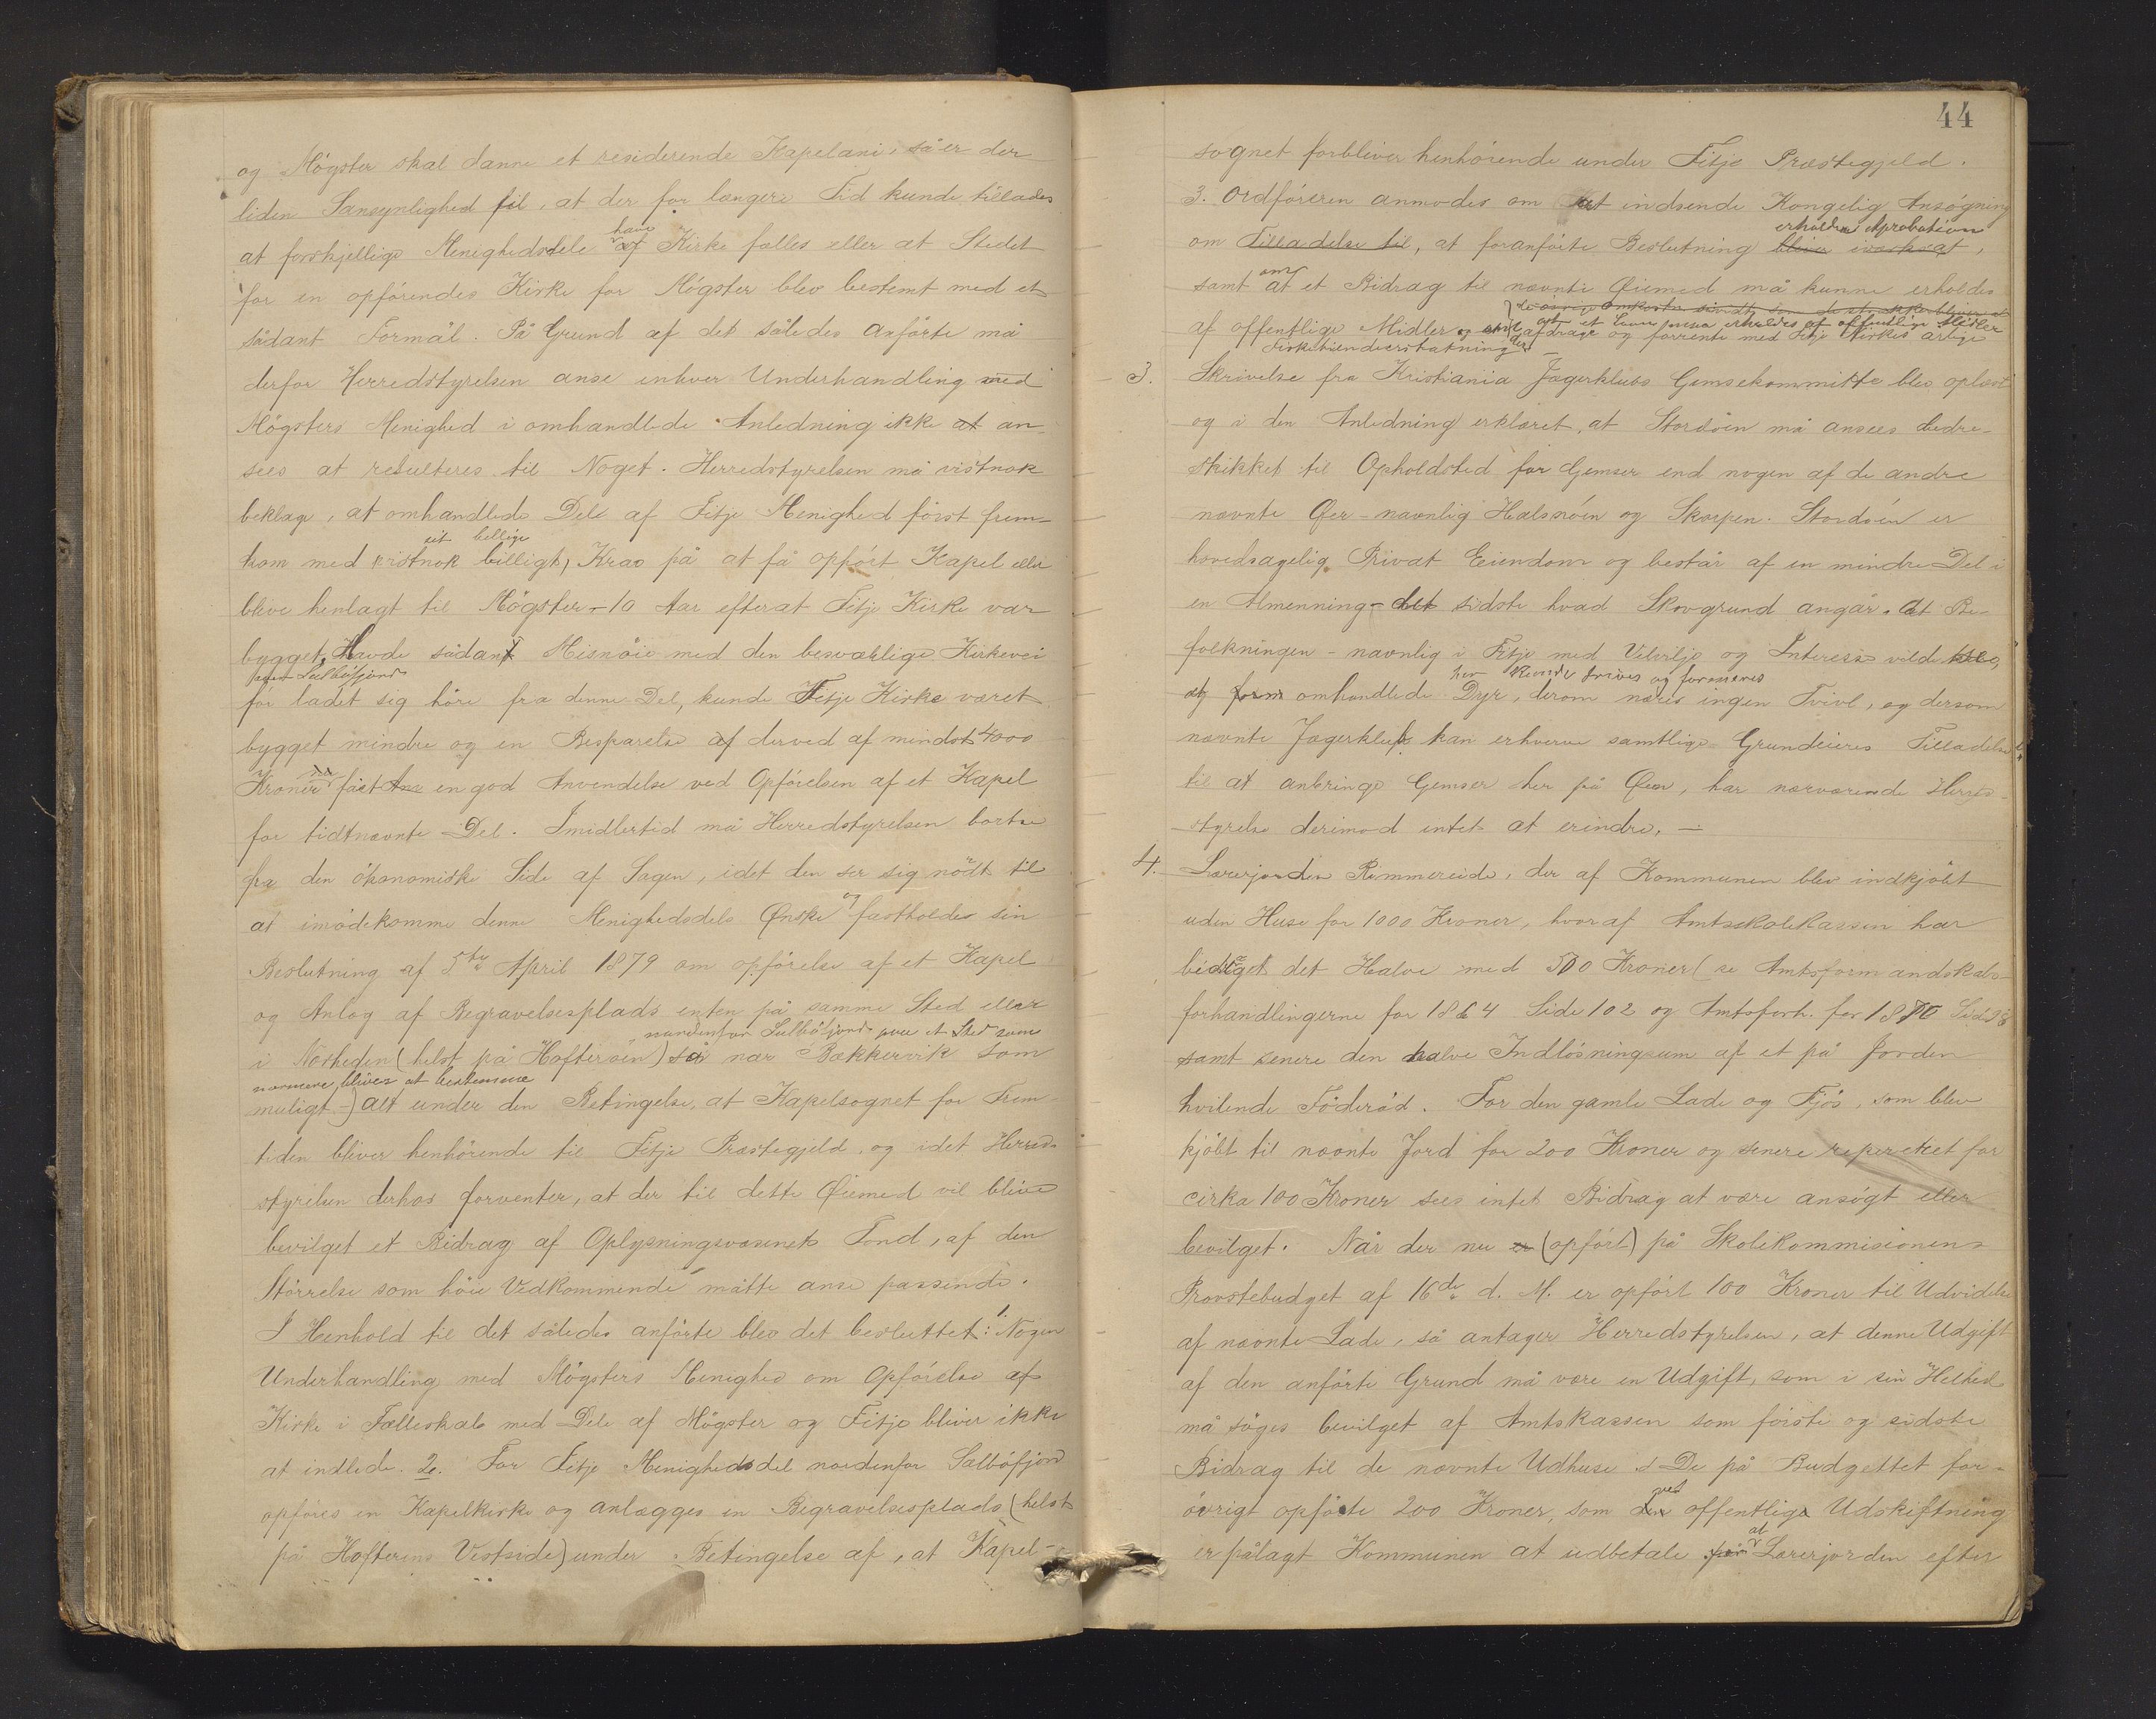 og Møgster skal danne et residerende Kapelani, så er der
liden Sansynlighed til, at der for længere Tid kunde tillades
at forskjellige Menighedsdele have Kirke fælles eller at Stedet
for en opførendes Kirke for Møgster blev bestemt med et
sådant Formål. På Grund af det således Anførte må
derfor Herredstyrelsen anse enhver Underhandling med
Møgsters Menighed i omhandlede Anledning ikke at an-
sees at resulteres til Noget. Herredstyrelsen må vistnok
beklage, at omhandlede Dele af Fitje Menighed først frem-
sit billige
kom med vistnok billigt, Krav på at få opført Kapel eller
blive henlagt til Møgster - 10 Aar efterat Fitje Kirke var
bygget, Havde sådant Misnøie med den besværlige Kirkevei
over Selbøfjord
før ladet sig høre fra denne Del, kunde Fitje Kirke været
bygget mindre og en Besparelse af derved af mindst 4000
Kroner fået en god Anvendelse ved Opførelsen af et Kapel
for tidtnævnte Del. Imidlertid må Herredstyrelsen bortse
fra den økonomiske Side af Sagen, idet den ser sig nødt til
at imødekomme denne Menighedsdels Ønske og fastholder sin
Beslutning af 5te April 1879 om opførelse af et Kapel
og Anlæg af Begravelsesplads enten på samme Sted eller
nordenfor Selbøfjord paa et Sted som
i Nærheden (helst på Hofterøen) så nær Bækkervik som
nærmere bliver at bestemme
muligt -) alt under den Betingelse, at Kapelsognet for Frem-
tiden bliver henhørende til Fitje Præstegjeld, og idet Herred-
styrelsen derhos forventer, at der til dette Øiemed vil blive
bevilget et Bidrag af Oplysningsvæsenets Fond, af den
Størrelse som høie Vedkommende måtte anse passende.
I Henhold til det således anførte blev det besluttet: 1. Nogen
Underhandling med Møgsters Menighed om Opførelse af
Kirke i Fælleskab med Dele af Møgster og Fitje bliver ikke
at indlede. 2. For Fitje Menighedsdel nordenfor Selbøfjord
opføres en Kapelkirke og anlægges en Begravelsesplads (helst
på Hofterens Vestside) under Betingelse af, at Kapel-
44
sognet forbliver henhørende under Fitje Præstegjeld.
3. Ordføreren anmodes om at indsende Kongelig Ansøgning
erholder Aprobation
om Tilladelse til, at foranførte Beslutning bliver iværksat,
samt om at et Bidrag til nævnte Øiemed må kunne erholdes
at et Laan maa erholdes af offentlige Midler
af offentlige Midler og afdrage og forrente med Fitje Kirkes årlige
Fisketiendeerstatning
3. Skrivelse fra Kristiania Jægerklubs Gemsekommitte blev oplæst
og i den Anledning erklæret, at Stordøen må ansees bedre
skikket til Opholdsted for Gemser end nogen af de andre
nævnte Øer - navnlig Halsnøen og Skorpen. Stordøen er
hovedsagelig Privat Eiendom og består af en mindre Del i
en Almenning - det sidste hvad Skovgrund angår. At Be-
folkningen - navnlig i Fitje med Velvilje og Interesse vilde se,
her kunde trives og formeres
at omhandlede Dyr, derom næres ingen Tvivl, og dersom
nævnte Jægerklub kan erhverve samtlige Grundeieres Tilladelse
til at anbringe Gemser her på Øen, har nærværende Herred-
styrelse derimod intet at erindre. -
4. Lærerjorden Rimmereide, der af Kommunen blev indkjøbt
uden Huse for 1000 Kroner, hvoraf Amtsskolekassen har
bidraget det Halve med 500 Kroner (se Amtsformandskabs-
forhandlingerne for 1864 Side 102 og Amtsforh. for 1870 Side
samt senere den halve Indløsningsum af et på Jorden
hvilende Føderåd. For den gamle Lade og Fjøs, som blev
kjøbt til nævnte Jord for 200 Kroner og senere reparertet for
cirka 100 Kroner sees intet Bidrag at være ansøgt eller
bevilget. Når der nu er (opført) på Skolekommisionens
Provstebudget af 16de d. M. er opført 100 Kroner til Udvidelse
af nævnte Lade, så antager Herredstyrelsen, at denne Udgift
af den anførte Grund må være en Udgift, som i sin Helhed
må søges bevilget af Amtskassen som første og sidste
Bidrag til de nævnte Udhuse. De på Budgettet for-
øvrigt opførte 200 Kroner, som ved offentlig Udskiftning
er pålagt Kommunen at udbetale at Lærerjorden efter